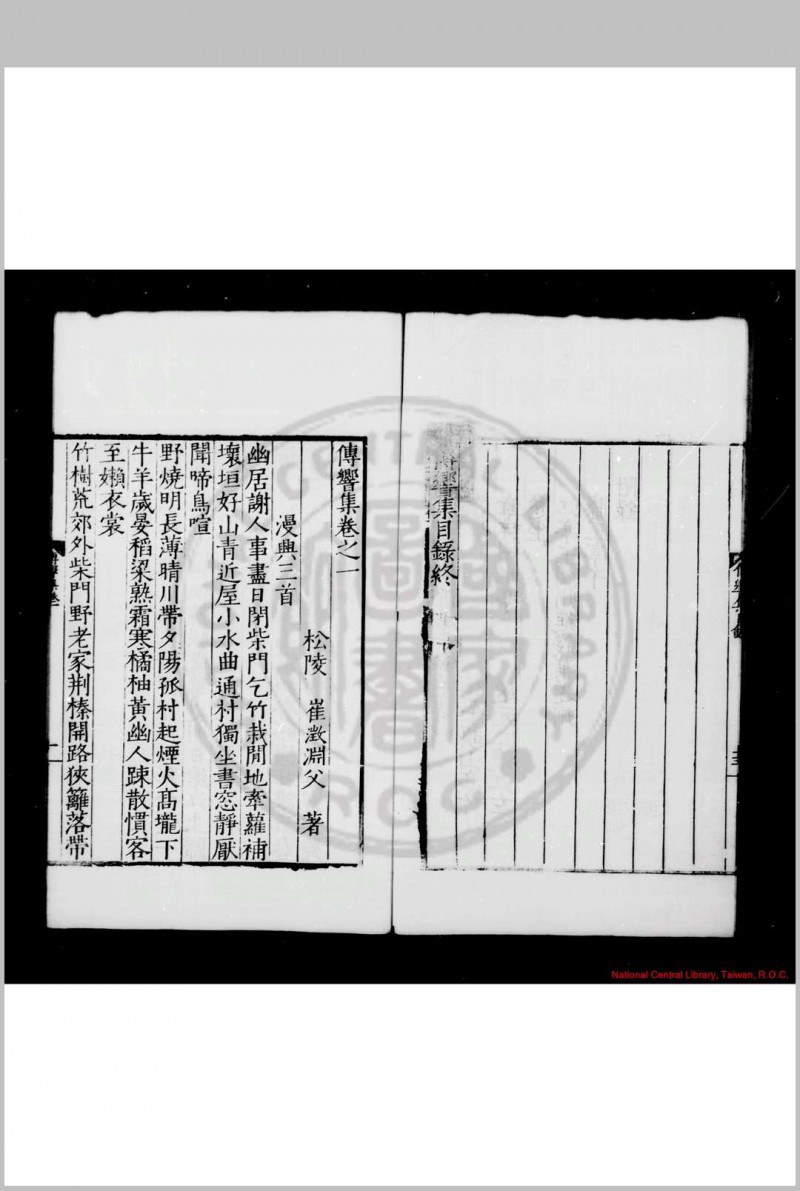 響集目錄終
傳響集卷之一
松陵 崔澂淵父 著
漫興三首
幽居謝人事盡日閉柴門乞竹栽閒地牽蘿補
壞垣好山青近屋小水曲通村獨坐書窓靜厭
聞啼鳥喧
野燒明長薄晴川帶夕陽孤村起煙火髙壠下
牛羊歲晏稻粱熟霜寒橘柚黃幽人踈散慣客
至嬾衣裳
竹樹荒郊外柴門野老家荆榛開路狹籬落帶
NATIONAL CENTRAL LIBRARY
R.O.C
National Central Library, Taiwan, R.O.C.